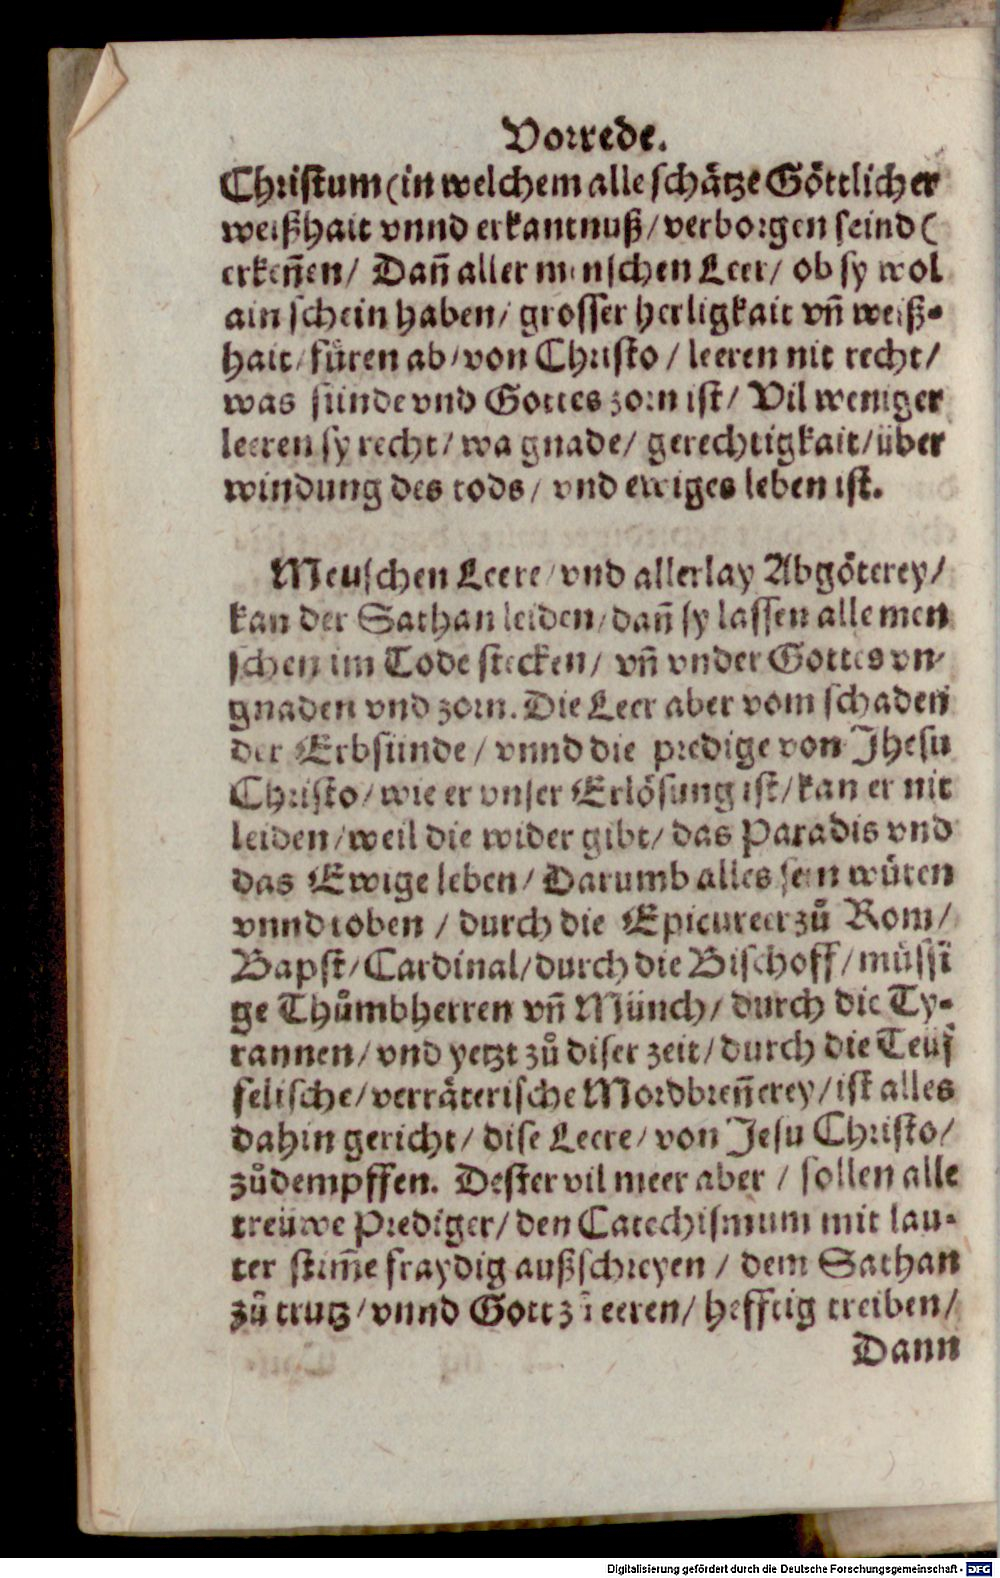 Vorrede.
Christum (in welchem alle schätze Göttlicher
weißhait vnnd erkantnuß / verborgen seind (
erkeñen / Dañ aller menschen Leer / ob sy wol
ain schein haben / grosser herligkait vñ weiß⸗
hait / fůren ab / von Christo / leeren nit recht /
was sünde vnd Gottes zorn ist / Vil weniger
leeren sy recht / wa gnade / gerechtigkait / über
windung des tods / vnd ewiges leben ist.
Meuschen Leere / vnd allerlay Abgöterey /
kan der Sathan leiden / dañ sy lassen alle men
schen im Tode stecken / vñ vnder Gottes vn⸗
gnaden vnd zorn. Die Leer aber vom schaden
der Erbsünde / vnnd die predige von Jhesu
Christo / wie er vnser Erlösung ist / kan er nit
leiden / weil die wider gibt / das Paradis vnd
das Ewige leben / Darumb alles sein wüten
vnnd toben / durch die Epicureer zů Rom /
Bapst / Cardinal / durch die Bischoff / müssi
ge Thůmbherren vñ Münch / durch die Ty⸗
rannen / vnd yetzt zů diser zeit / durch die Teuf
felische / verräterische Mordbreñerey / ist alles
dahin gericht / dise Leere / von Jesu Christo /
zůdempffen. Dester vil meer aber / sollen alle
treüwe Prediger / den Catechismum mit lau⸗
ter stim̃e fraydig außschreyen / dem Sathan
zů trutz / vnnd Gott zů eeren / hefftig treiben /
Dann
Digitalisierung gefördert durch die Deutsche Forschungsgemeinschaft - DFG